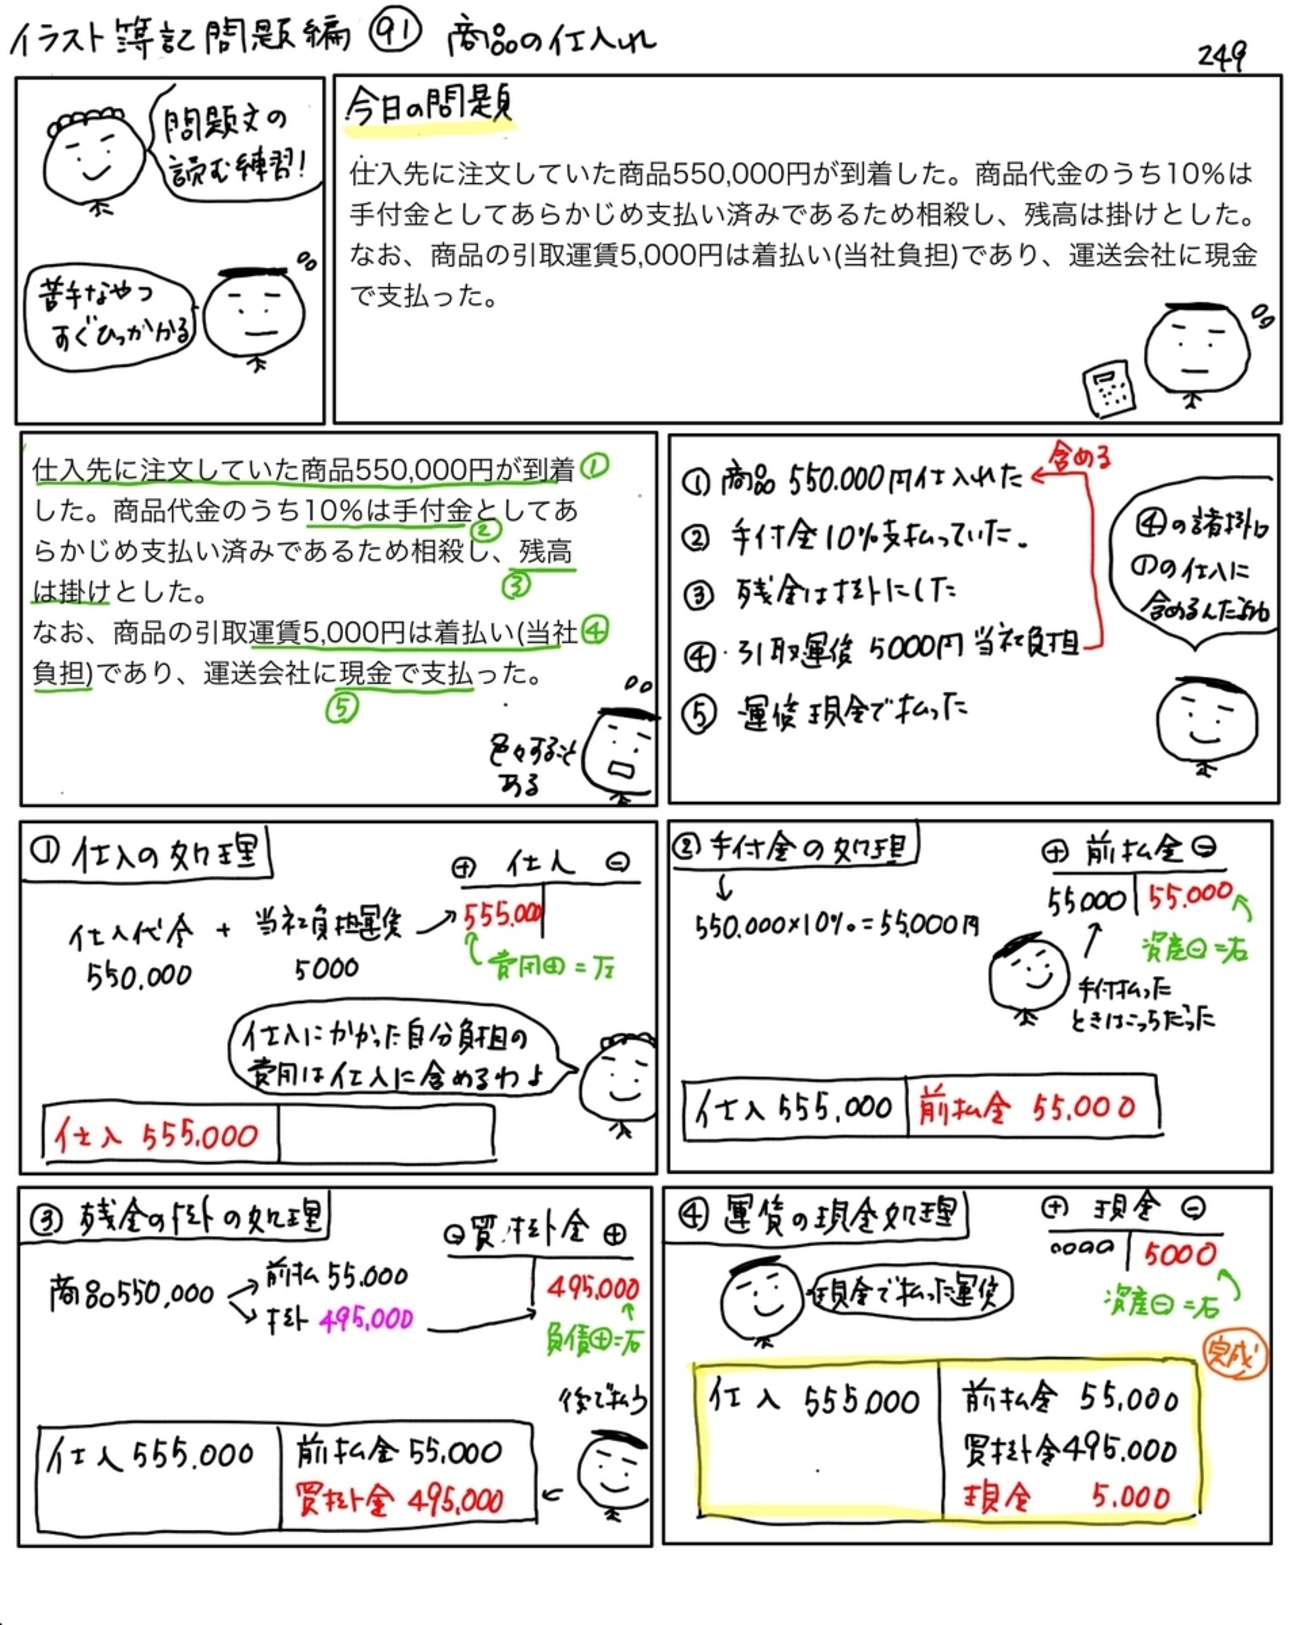 イラスト簿記問題編 91 商品の仕入れ
249
問題文の
読む練習!
苦手なやつ
すぐひっかかる
今日の問題
仕入先に注文していた商品550,000円が到着した。商品代金のうち10%は
手付金としてあらかじめ支払い済みであるため相殺し、残高は掛けとした。
なお、商品の引取運賃5,000円は着払い(当社負担)であり、運送会社に現金
で支払った。
仕入先に注文していた商品550,000円が到着 ①
した。商品代金のうち10%は手付金としてあ
②
らかじめ支払い済みであるため相殺し、残高
は掛けとした。 ③
なお、商品の引取運賃5,000円は着払い(当社 ④
負担)であり、運送会社に現金で支払った。
⑤
色々すること
ある
含める
①商品 550.000円仕入れた
② 手付金10%支払っていた。
③ 残金は掛けにした
④・引取運賃 5000円当社負担
⑤ 運賃現金で払った
④の諸掛は
①の仕入に
含めるんだよね
①仕入の処理
⊕ 仕入 ⊖
555.000
費用⊕=左
仕入代金 + 当社負担運賃
550.000 5000
仕入にかかった自分負担の
費用は仕入に含めるわよ
仕入 555.000
②手付金の処理
⊕ 前払金 ⊖
55.000 55.000
550.000×10%=55,000円
資産⊖=右
手付払った
ときはこっちだった
仕入 555,000 前払金 55,000
③残金の掛の処理
⊖買掛金⊕
495,000
負債⊕=右
商品550,000
前払 55.000
掛 495,000
後で払う
仕入 555.000 前払金 55,000
買掛金 495,000
④運賃の現金処理
⊕ 現金 ⊖
5000
資産⊖=右
現金で払った運賃
完成
仕入 555.000 前払金 55,000
買掛金495,000
現金 5.000